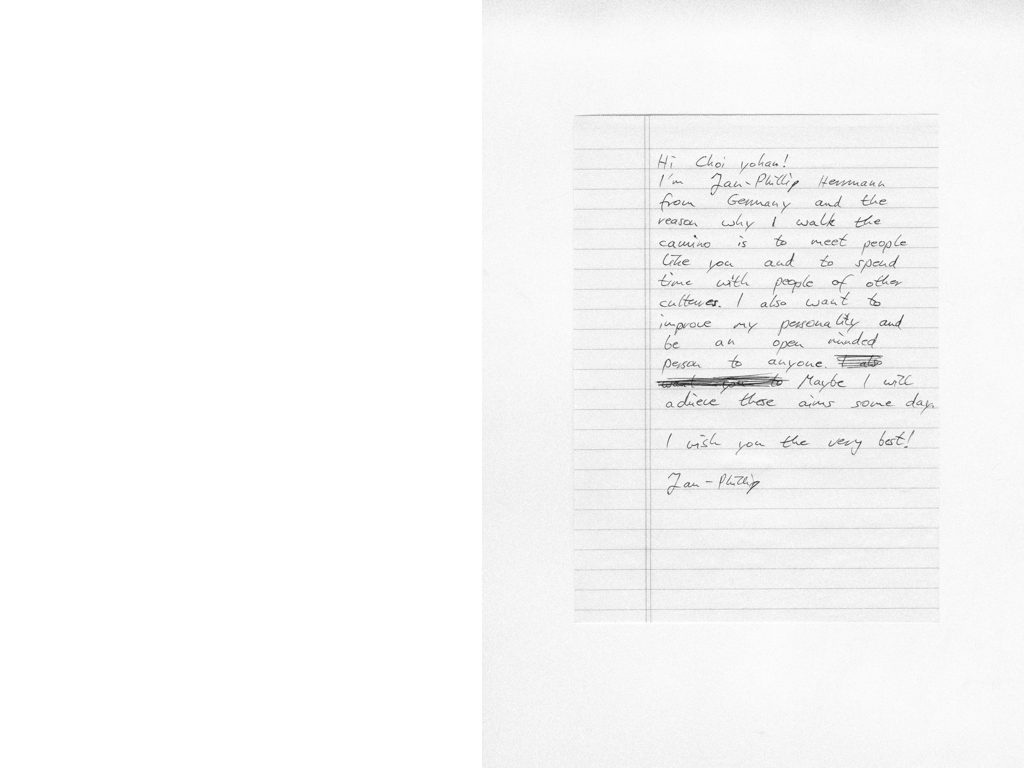 Hi Choi yohan!
I'm Jan-Phillip Herrmann
from Germany and the
reason why I walk the
camino is to meet people
like you and to spend
time with people of other
cultures. I also want to
improve my personality and
be an open minded
person to anyone. I also
want you to Maybe I will
achieve these aims some day.
I wish you the very best!
Jan-Phillip